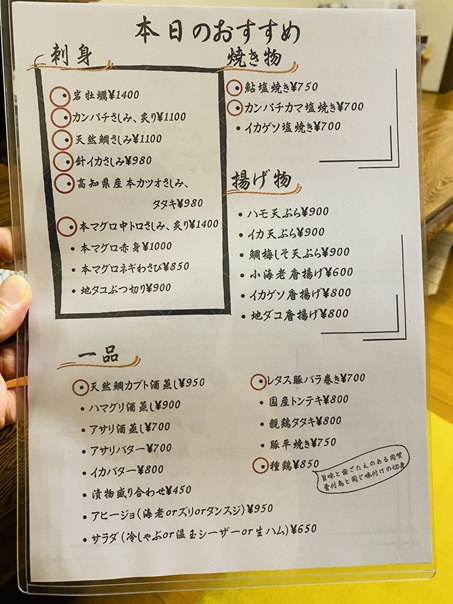 本日のおすすめ
刺身
岩牡蠣¥1400
カンパチさしみ、炙り¥1100
天然鯛さしみ¥1100
針イカさしみ¥980
高知県産本カツオさしみ、
タタキ¥980
本マグロ中トロさしみ、炙り¥1400
・本マグロ赤身¥1000
・本マグロネギわさび¥850
・地タコぶつ切り¥900
焼き物
鮎塩焼き¥750
カンパチカマ塩焼き¥700
・イカゲソ塩焼き¥700
揚げ物
・ハモ天ぷら¥900
・イカ天ぷら¥900
・鯛梅しそ天ぷら¥900
・小海老唐揚げ¥600
・イカゲソ唐揚げ¥800
・地ダコ唐揚げ¥800
一品
・天然鯛カブト酒蒸し¥950
・ハマグリ酒蒸し¥900
・アサリ酒蒸し¥700
・アサリバター¥700
・イカバター¥800
・漬物盛り合わせ¥450
・アヒージョ(海老orズリorタンスジ)¥950
・サラダ(冷しゃぶor温玉シーザーor生ハム)¥650
・レタス豚バラ巻き¥700
・国産トンテキ¥800
・親鶏タタキ¥800
・豚平焼き¥750
・種鶏¥850
旨味と歯ごたえのある肉質
骨付鳥と同じ味付けの切身